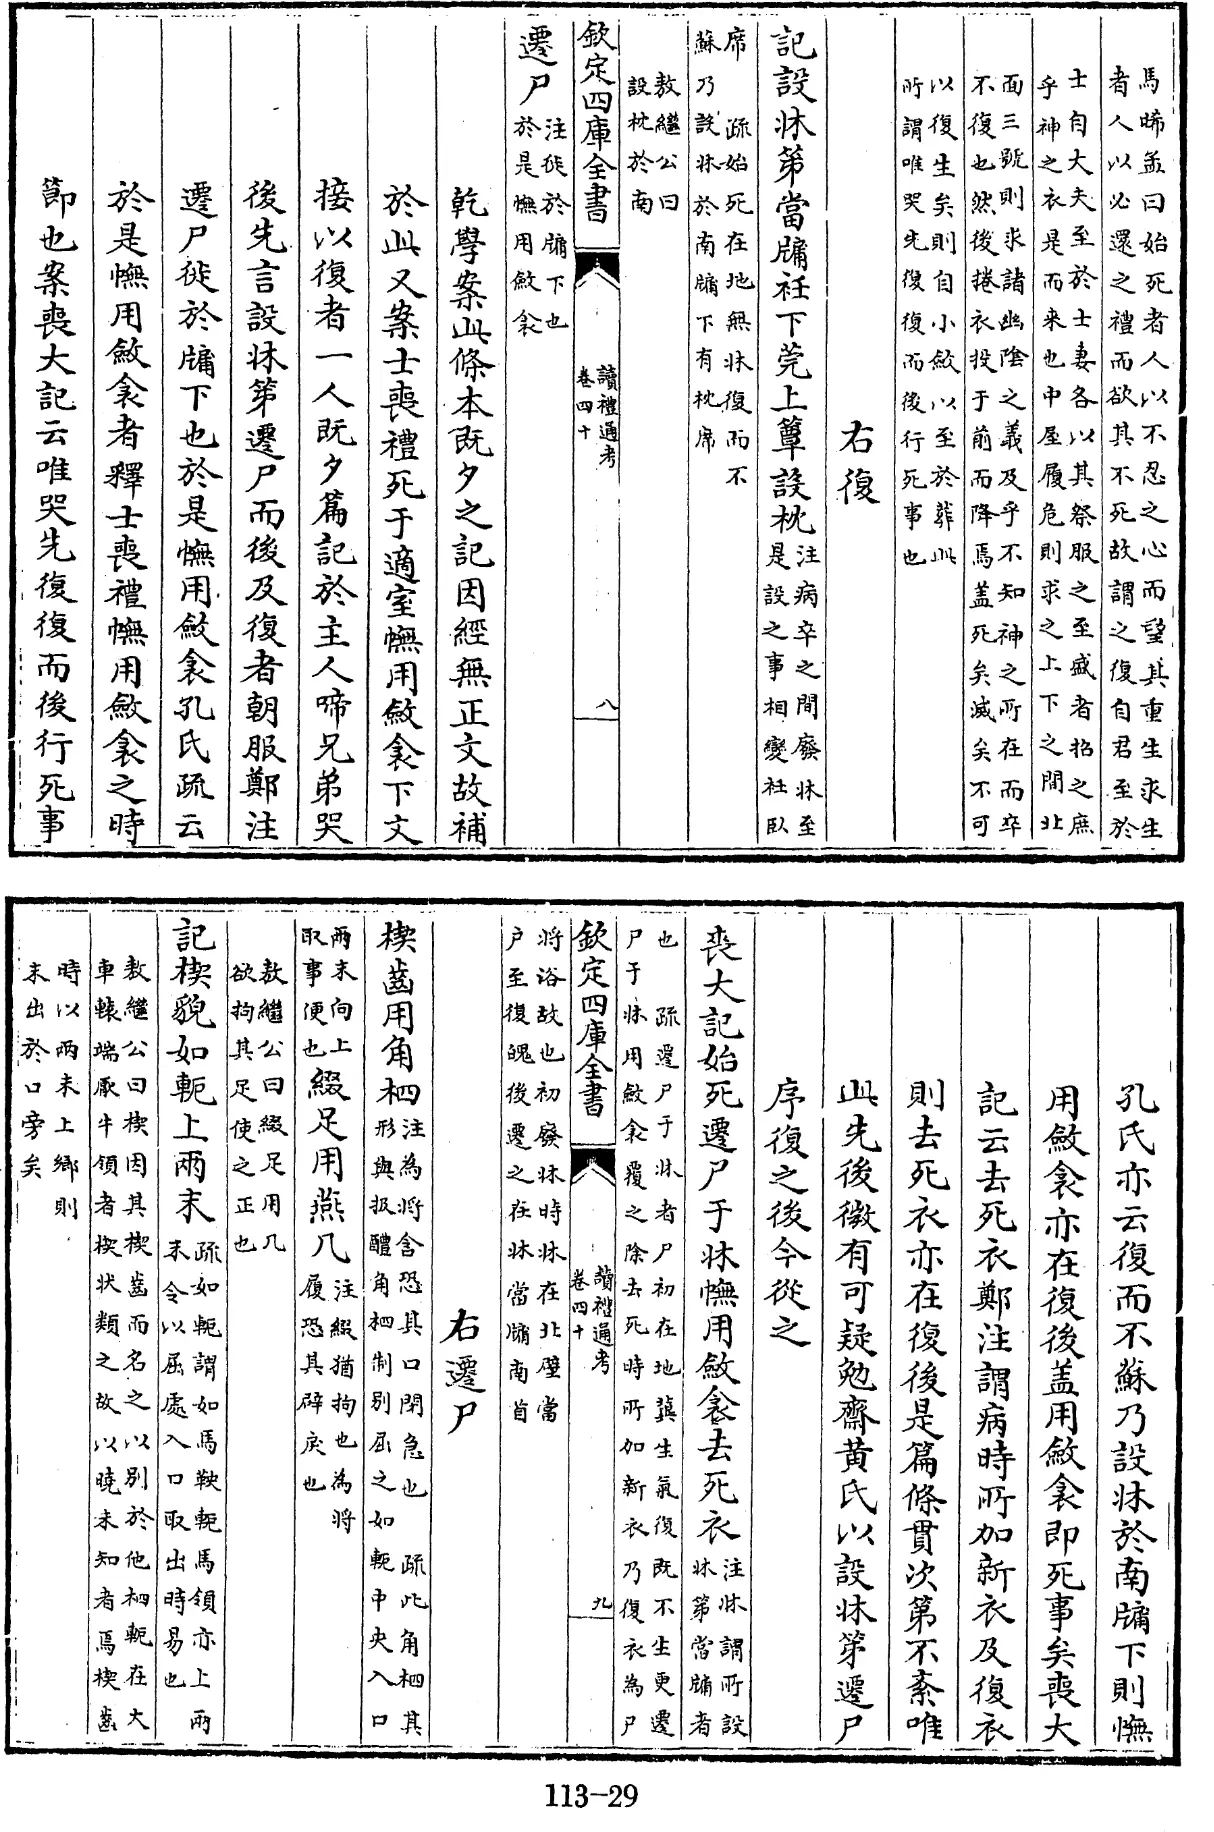 馬晞孟曰始死者人以不忍之心而望其重生求生
者人以必還之禮而欲其不死故謂之復自君至於
士自大夫至於士妻各以其祭服之至盛者招之庶
乎神之衣是而来也中屋履危則求之上下之間北
面三號則求諸幽陰之義及乎不知神之所在而卒
不復也然後捲衣投于前而降焉盖死矣滅矣不可
以復生矣則自小斂以至於葬此
所謂唯哭先復復而後行死事也
右復
記設牀第當牖衽下莞上簟設枕
注病卒之間廢牀至
是設之事相變衽臥
席 疏始死在地無牀復而不
蘇乃設牀於南牖下有枕席
敖繼公曰
設枕於南
欽定四庫全書
讀禮通考
卷四十
八
遷尸
注徙於牖下也
於是幠用斂衾
乾學案此條本既夕之記因經無正文故補
於此又案士喪禮死于適室幠用斂衾下文
接以復者一人既夕篇記於主人啼兄弟哭
後先言設牀第遷尸而後及復者朝服鄭注
遷尸徙於牖下也於是幠用斂衾孔氏疏云
於是幠用斂衾者釋士喪禮幠用斂衾之時
節也案喪大記云唯哭先復復而後行死事
孔氏亦云復而不蘇乃設牀於南牖下則幠
用斂衾亦在復後盖用斂衾即死事矣喪大
記云去死衣鄭注謂病時所加新衣及復衣
則去死衣亦在復後是篇條貫次第不紊唯
此先後微有可疑勉齋黃氏以設牀第遷尸
序復之後今從之
喪大記始死遷尸于牀幠用斂衾去死衣
注牀謂所設
牀第當牖者
也 疏遷尸于牀者尸初在地冀生氣復既不生更遷
尸于牀用斂衾覆之除去死時所加新衣乃復衣為尸
欽定四庫全書
讀禮通考
卷四十
九
將浴故也初廢牀時牀在北壁當
戶至復魄後遷之在牀當牖南首
右遷尸
楔齒用角柶
注為將含恐其口閉急也 疏此角柶其
形與扱醴角柶制别屈之如軛中央入口
兩末向上
取事便也
綴足用燕几
注綴猶拘也為將
履恐其辟戾也
敖繼公曰綴足用几
欲拘其足使之正也
記楔貌如軛上兩末
疏如軛謂如馬鞅軛馬領亦上兩
末令以屈處入口取出時易也
敖繼公曰楔因其楔齒而名之以别於他柶軛在大
車轅端厭牛領者楔状類之故以曉未知者焉楔齒
時以兩末上鄉則
末出於口旁矣
113-29